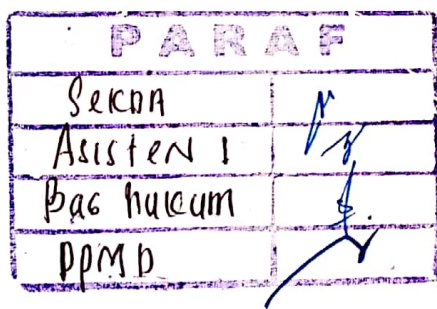 PARAF
SEKDA
ASISTEN I
BAG HUKUM
DPMD